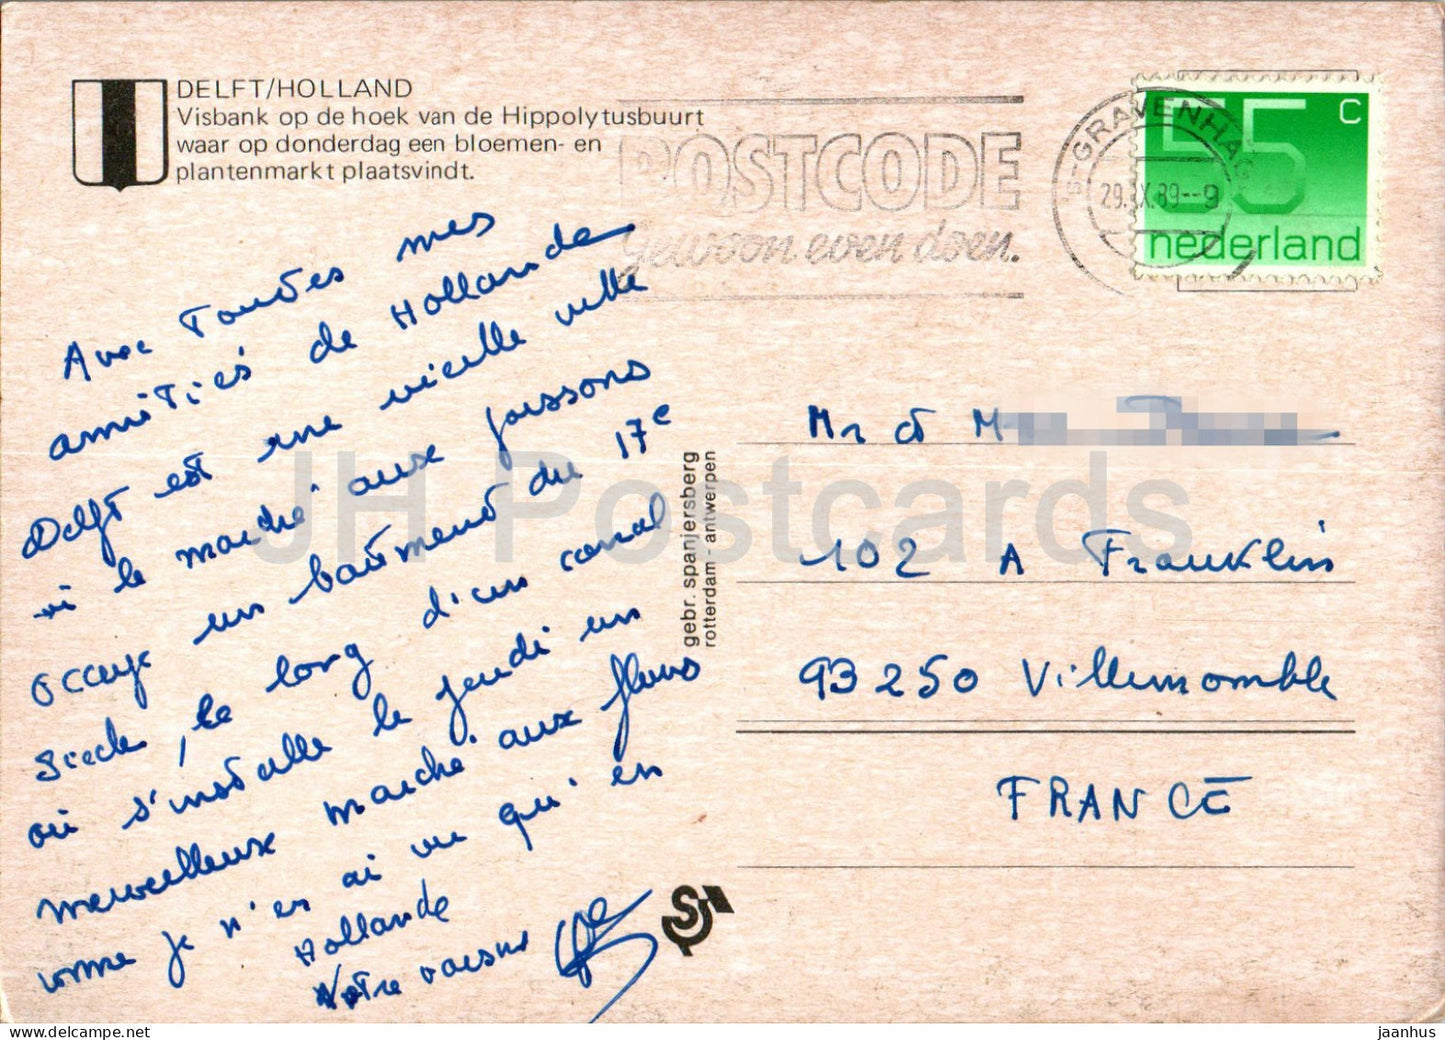 DELFT/HOLLAND
Visbank op de hoek van de Hippolytusbuurt
waar op donderdag een bloemen- en
plantenmarkt plaatsvindt.
POSTCODE
gewoon even doen.
'S-GRAVENHAGE
29.IX.89--9
55 c
nederland
Avec Toutes mes
amitiés de Hollande
Delft est une vieille ville
où le marché aux poissons
occupe un bâtiment du 17e
siècle, le long d'un canal
où s'installe le jeudi un
merveilleux marché aux fleurs
comme je n'en ai vu qu'en
Hollande
Votre voisine
gebr. spanjersberg
rotterdam - antwerpen
Mr et M
102 A Franklin
93250 Villemomble
FRANCE
JH Postcards
jaanhus - delcampe.net